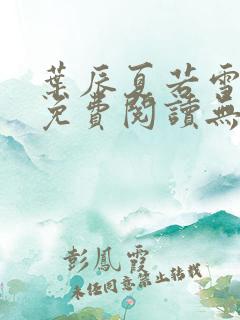 葉辰夏若雪
免費閱讀無
彭鳳霞
未經同意禁止轉載